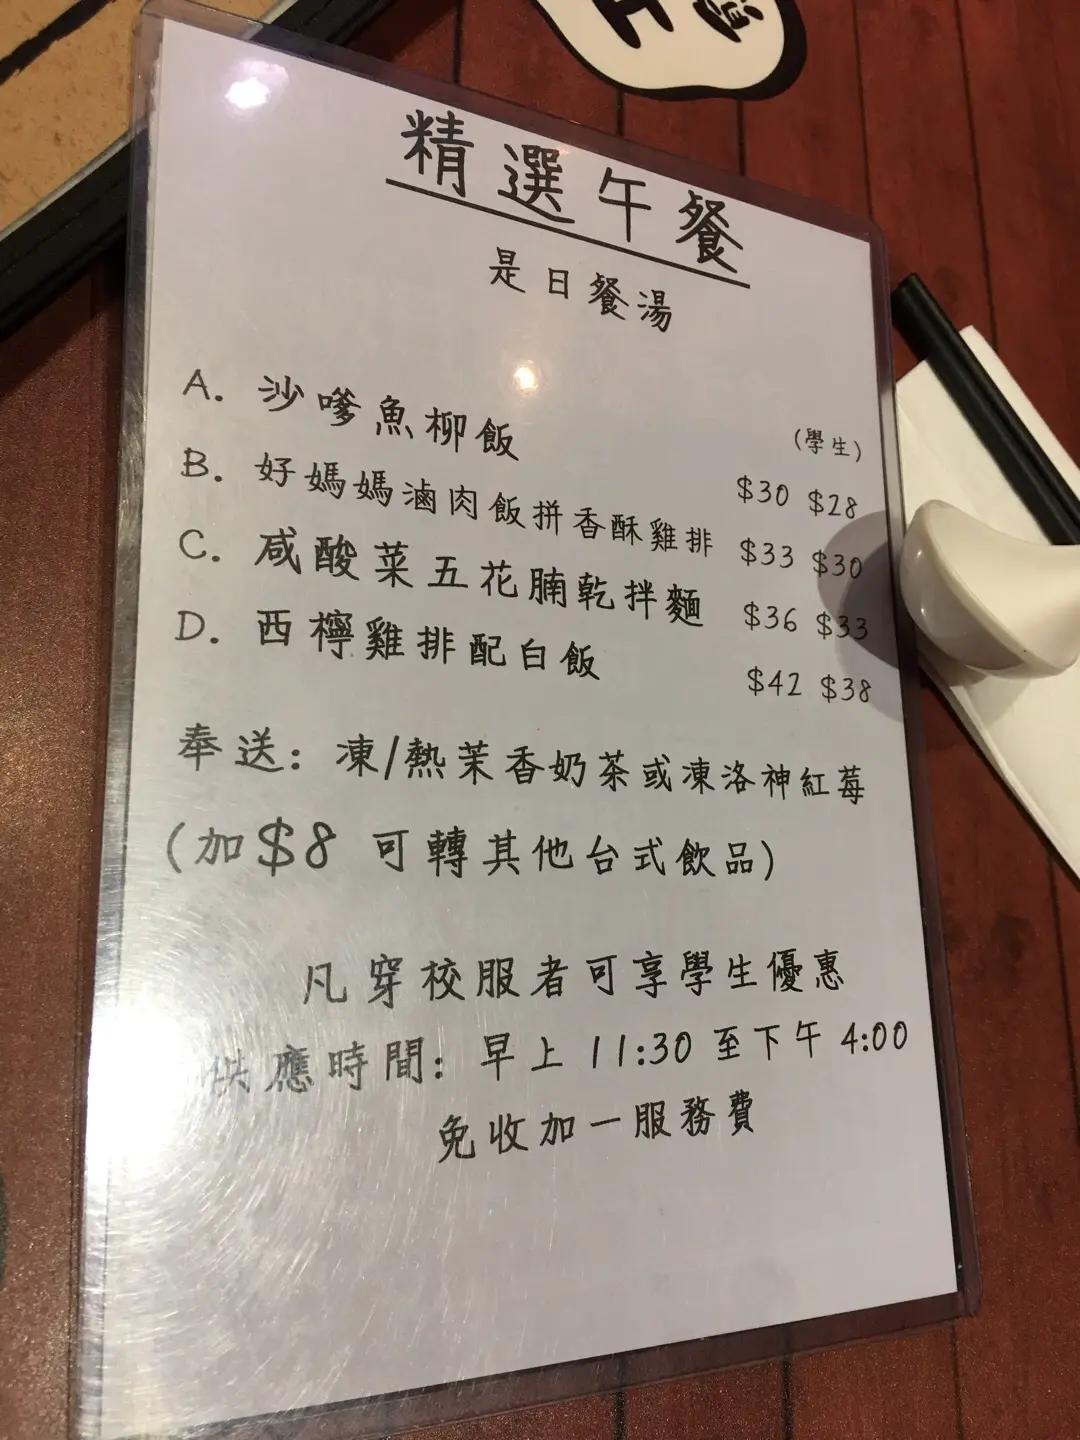 精選午餐
是日餐湯
(學生)
A. 沙嗲魚柳飯 $30 $28
B. 好媽媽滷肉飯拼香酥雞排 $33 $30
C. 咸酸菜五花腩乾拌麵 $36 $33
D. 西檸雞排配白飯 $42 $38
奉送: 凍/熱茉香奶茶或凍洛神紅莓
(加$8 可轉其他台式飲品)
凡穿校服者可享學生優惠
供應時間: 早上 11:30 至下午 4:00
免收加一服務費